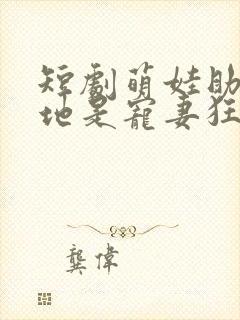 短劇萌娃助
地是寵妻狂
龔偉